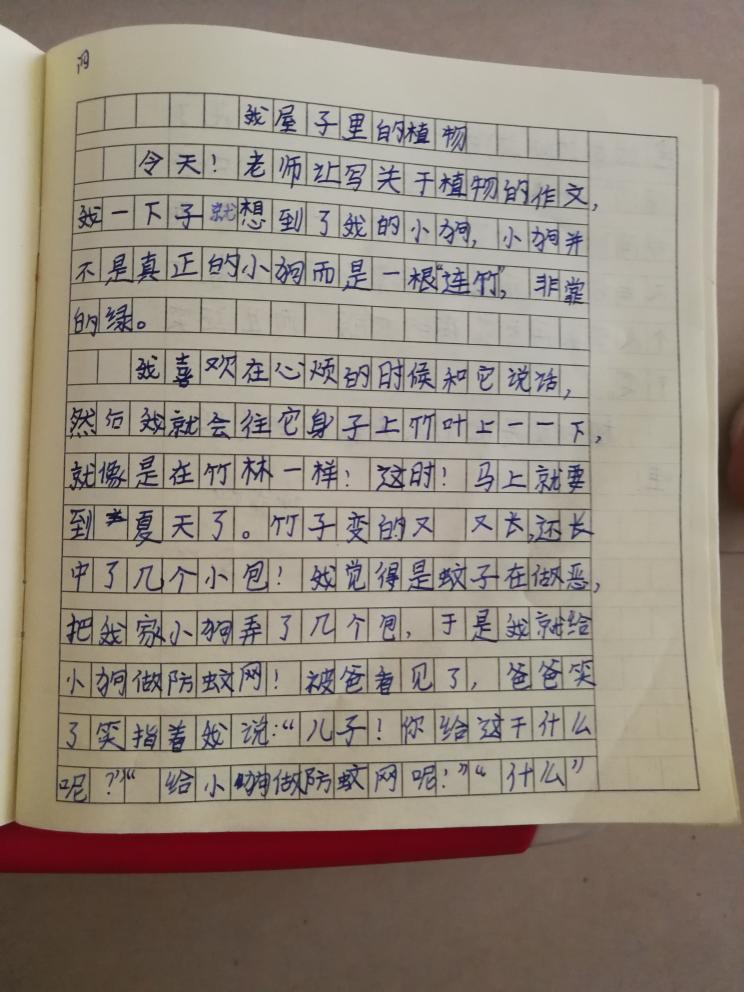 我屋子里的植物
令天！老师让写关于植物的作文，
我一下子就想到了我的小狗，小狗并
不是真正的小狗而是一根“连竹”，非常
的绿。
我喜欢在心烦的时候和它说话，
然后我就会往它身子上竹叶上一一下，
就像是在竹林一样！这时！马上就要
到夏天了。竹子变的又 又长，还长
中了几个小包！我觉得是蚊子在做恶，
把我家小狗弄了几个包，于是我就给
小狗做防蚊网！被爸看见了，爸爸笑
了笑指着我说：“儿子！你给这干什么
呢？”“给小狗做防蚊网呢！”“什么”